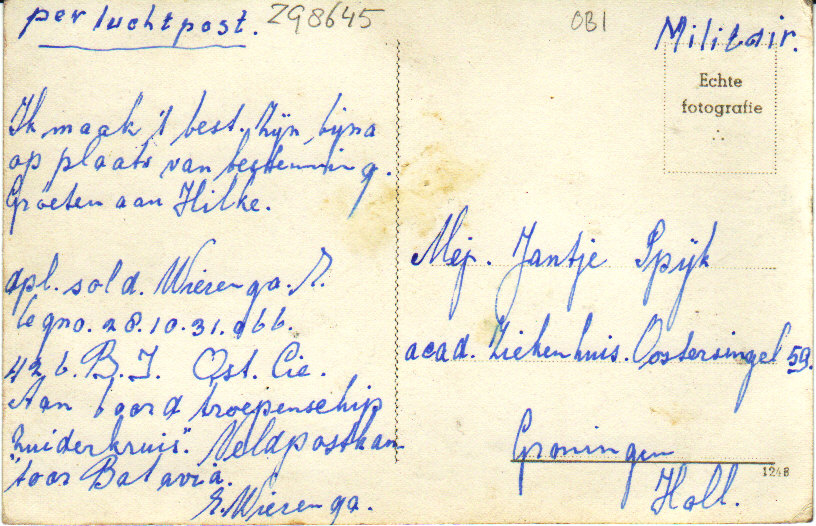 per luchtpost.
ZG8645
OBI
Militair.
Echte
fotografie
Ik maak 't best. Zijn bijna
op plaats van bestemming.
Groeten aan Hilke.
dpl. sold. Wierenga. R.
legno. 28.10.31.066.
42 b. B. I. Ost. Cie.
Aan boord troepenschip
"Zuiderkruis". Veldpostkan
toor Batavia.
Wierenga.
Mej. Jantje Spijk
acad. Ziekenhuis. Oostersingel 59.
Groningen
Holl.
1248